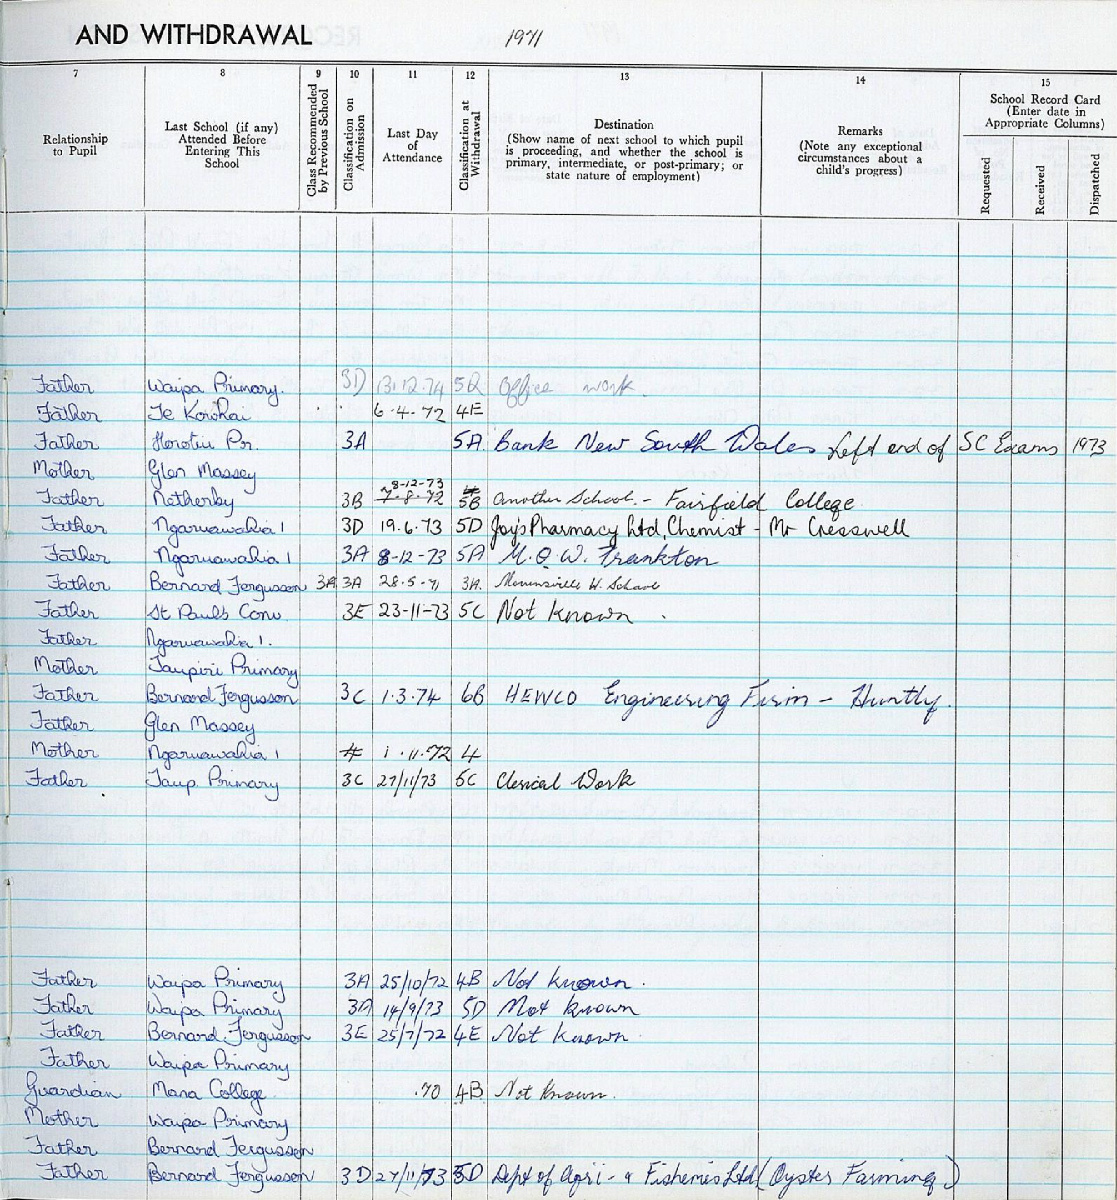 AND WITHDRAWAL 1971
7 8 9 10 11 12 13 14 15
Relationship to Pupil
Last School (if any) Attended Before Entering This School
Class Recommended by Previous School
Classification on Admission
Last Day of Attendance
Classification at Withdrawal
Destination
(Show name of next school to which pupil is proceeding, and whether the school is primary, intermediate, or post-primary; or state nature of employment)
Remarks
(Note any exceptional circumstances about a child's progress)
School Record Card
(Enter date in Appropriate Columns)
Requested
Received
Dispatched
Father Waipa Primary. 3D 13.12.74 Office work.
Father Te Kowhai 6.4.72 4E
Father Horotiu Pr. 3A 5A Bank New South Wales Left end of SC Exams 1973
Mother Glen Massey
8-12-73
Father Netherby 3B 7.8.72 5B Another School. - Fairfield College
Father Ngaruawahia 1 3D 19.6.73 5D Joy's Pharmacy Ltd, Chemist - Mr Cresswell
Father Ngaruawahia 1 3A 8-12-73 5A M.O.W. Frankton
Father Bernard Fergusson 3A 3A 28.5.71 3A. Morrinsville W. School
Father St Pauls Conv 3E 23-11-73 5C Not known.
Father Ngaruawahia 1.
Mother Taupiri Primary
Father Bernard Fergusson 3C 1.3.74 6B HEWCO Engineering Firm - Huntly.
Father Glen Massey
Mother Ngaruawahia 1 4 1.11.72 4
Father Taup. Primary 3C 27/11/73 5C Clerical Work
Father Waipa Primary 3A 25/10/72 4B Not known.
Father Waipa Primary 3A 14/9/73 5D Not known
Father Bernard Fergusson 3E 25/7/72 4E Not known.
Father Waipa Primary
Guardian Mana College .70 4B Not known.
Mother Waipa Primary
Father Bernard Fergusson
Father Bernard Fergusson 3D 27/11/73 5D Dept of Agri- & Fisheries Ltd (Oyster Farming)